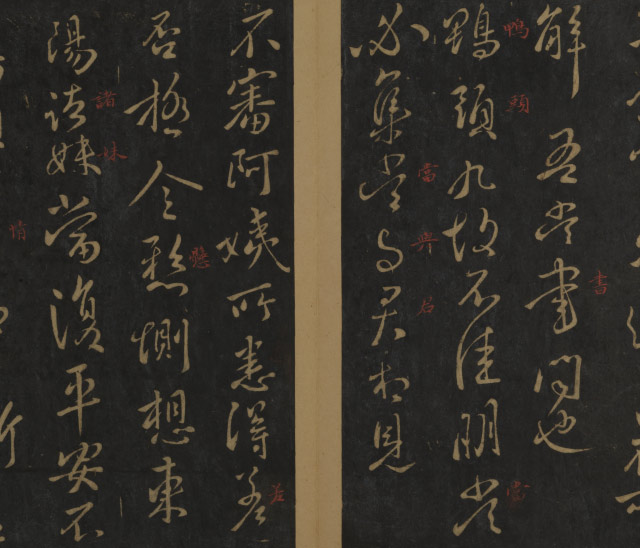 書
解吾當書問也
鴨頭當
鴨頭丸故不佳明當
當與君
必集當與君相見
差
不審阿姨所患得差
懸
否極令懸惻想東
諸妹
陽諸妹當復平安不
情